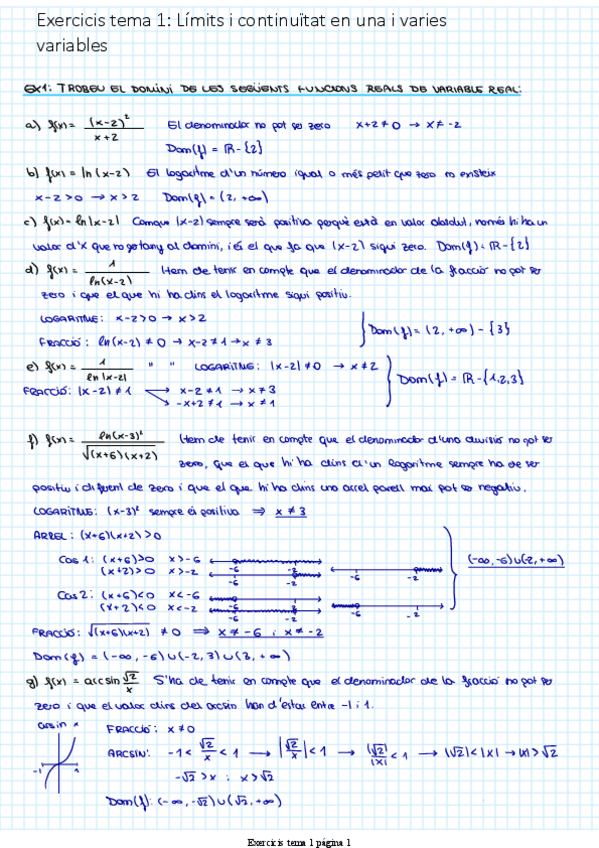 Exercicis tema 1: Límits i continuïtat en una i varies
variables
EX1: TROBEU EL DOMINI DE LES SEGÜENTS FUNCIONS REALS DE VARIABLE REAL:
a) f(x) = (x-2)² / x+2 El denominador no pot ser zero x+2 ≠ 0 → x ≠ -2
Dom(f) = ℝ - {2}
b) f(x) = ln(x-2) El logaritme d'un número igual o més petit que zero no existeix
x-2 > 0 → x > 2 Dom(f) = (2, +∞)
c) f(x) = ln|x-2| Com que |x-2| sempre serà positiva perquè està en valor absolut, només hi ha un
valor d'x que no pertany al domini, i és el que fa que |x-2| sigui zero. Dom(f) = ℝ - {2}
d) f(x) = 1 / ln(x-2) Hem de tenir en compte que el denominador de la fracció no pot ser
zero i que el que hi ha dins el logaritme sigui positiu.
LOGARITME: x-2 > 0 → x > 2
FRACCIÓ: ln(x-2) ≠ 0 → x-2 ≠ 1 → x ≠ 3 Dom(f) = (2, +∞) - {3}
e) f(x) = 1 / ln|x-2| " " LOGARITME: |x-2| ≠ 0 → x ≠ 2
FRACCIÓ: |x-2| ≠ 1 → x-2 ≠ 1 → x ≠ 3 Dom(f) = ℝ - {1,2,3}
→ -x+2 ≠ 1 → x ≠ 1
f) f(x) = ln(x-3)² / √(x+6)(x+2) Hem de tenir en compte que el denominador d'una divisió no pot ser
zero, que el que hi ha dins d'un logaritme sempre ha de ser
positiu i diferent de zero i que el que hi ha dins una arrel parell mai pot ser negatiu.
LOGARITME: (x-3)² sempre és positiva ⇒ x ≠ 3
ARREL: (x+6)(x+2) > 0
Cas 1: (x+6) > 0 x > -6 -6 -2 (-∞, -6) ∪ (-2, +∞)
(x+2) > 0 x > -2 -6 -2 -6 -2
Cas 2: (x+6) < 0 x < -6 -6 -2
(x+2) < 0 x < -2 -6 -2 -6 -2
FRACCIÓ: √(x+6)(x+2) ≠ 0 ⇒ x ≠ -6 i x ≠ -2
Dom(f) = (-∞, -6) ∪ (-2, 3) ∪ (3, +∞)
g) f(x) = arcsin √2 / x S'ha de tenir en compte que el denominador de la fracció no pot ser
zero i que el valor dins del arcsin han d'estar entre -1 i 1.
arcsin x FRACCIÓ: x ≠ 0
-1 1 ARCSIN: -1 < √2/x < 1 → |√2/x| < 1 → |√2|/|x| < 1 → |√2| < |x| → |x| > √2
-√2 > x ; x > √2
Dom(f): (-∞, -√2) ∪ (√2, +∞)
Exercicis tema 1 página 1